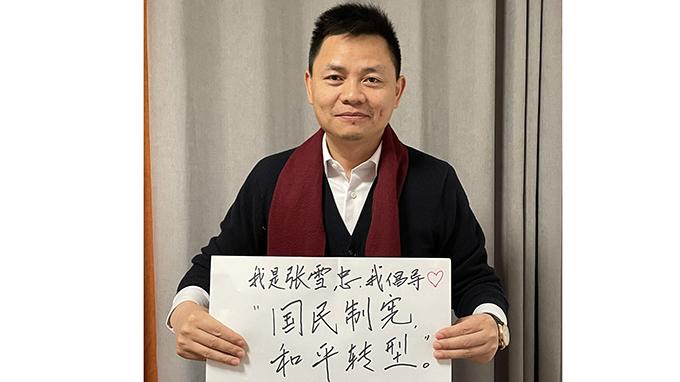 我是张雪忠,我倡导♡
"国民制宪,
和平转型。"